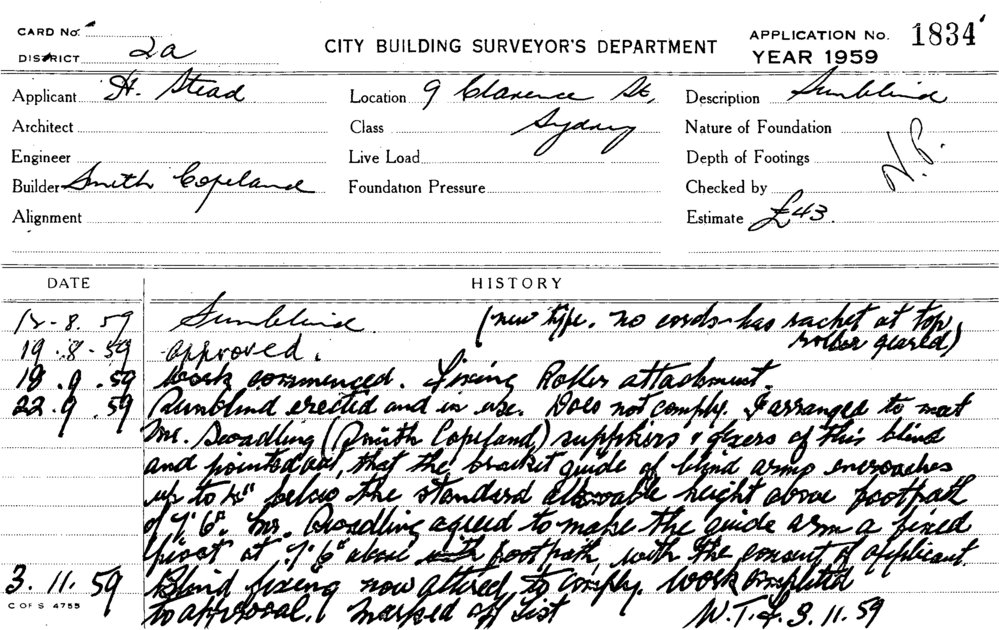 CARD No.
DISTRICT 2a
CITY BUILDING SURVEYOR'S DEPARTMENT
APPLICATION No. 1834
YEAR 1959
Applicant H. Stead
Location 9 Clarence St,
Description Sunblind
Architect
Class Sydney
Nature of Foundation
Engineer
Live Load
Depth of Footings
N.P.
Builder Smith Copeland
Foundation Pressure
Checked by
Alignment
Estimate £43.
DATE HISTORY
12-8.59 Sunblind. (new type. no cords - has rachet at top,
roller geared)
19.8.59 approved.
18.9.59 Work commenced. Fixing Roller attachment.
22.9.59 Sunblind erected and in use. Does not comply. I arranged to meet
Mr. (Smith Copeland) suppliers & fixers of this blind
and pointed out, that the bracket guide of blind arms encroaches
up to below the standard allowable height above footpath
of 7'6". Mr. agreed to make the guide arm a fixed
pivot at 7'6" above footpath, with the consent of applicant.
3.11.59 Blind fixing now altered to comply. Work completed
to approval. Marked off List W.T.F. 3.11.59
C OF S 4755